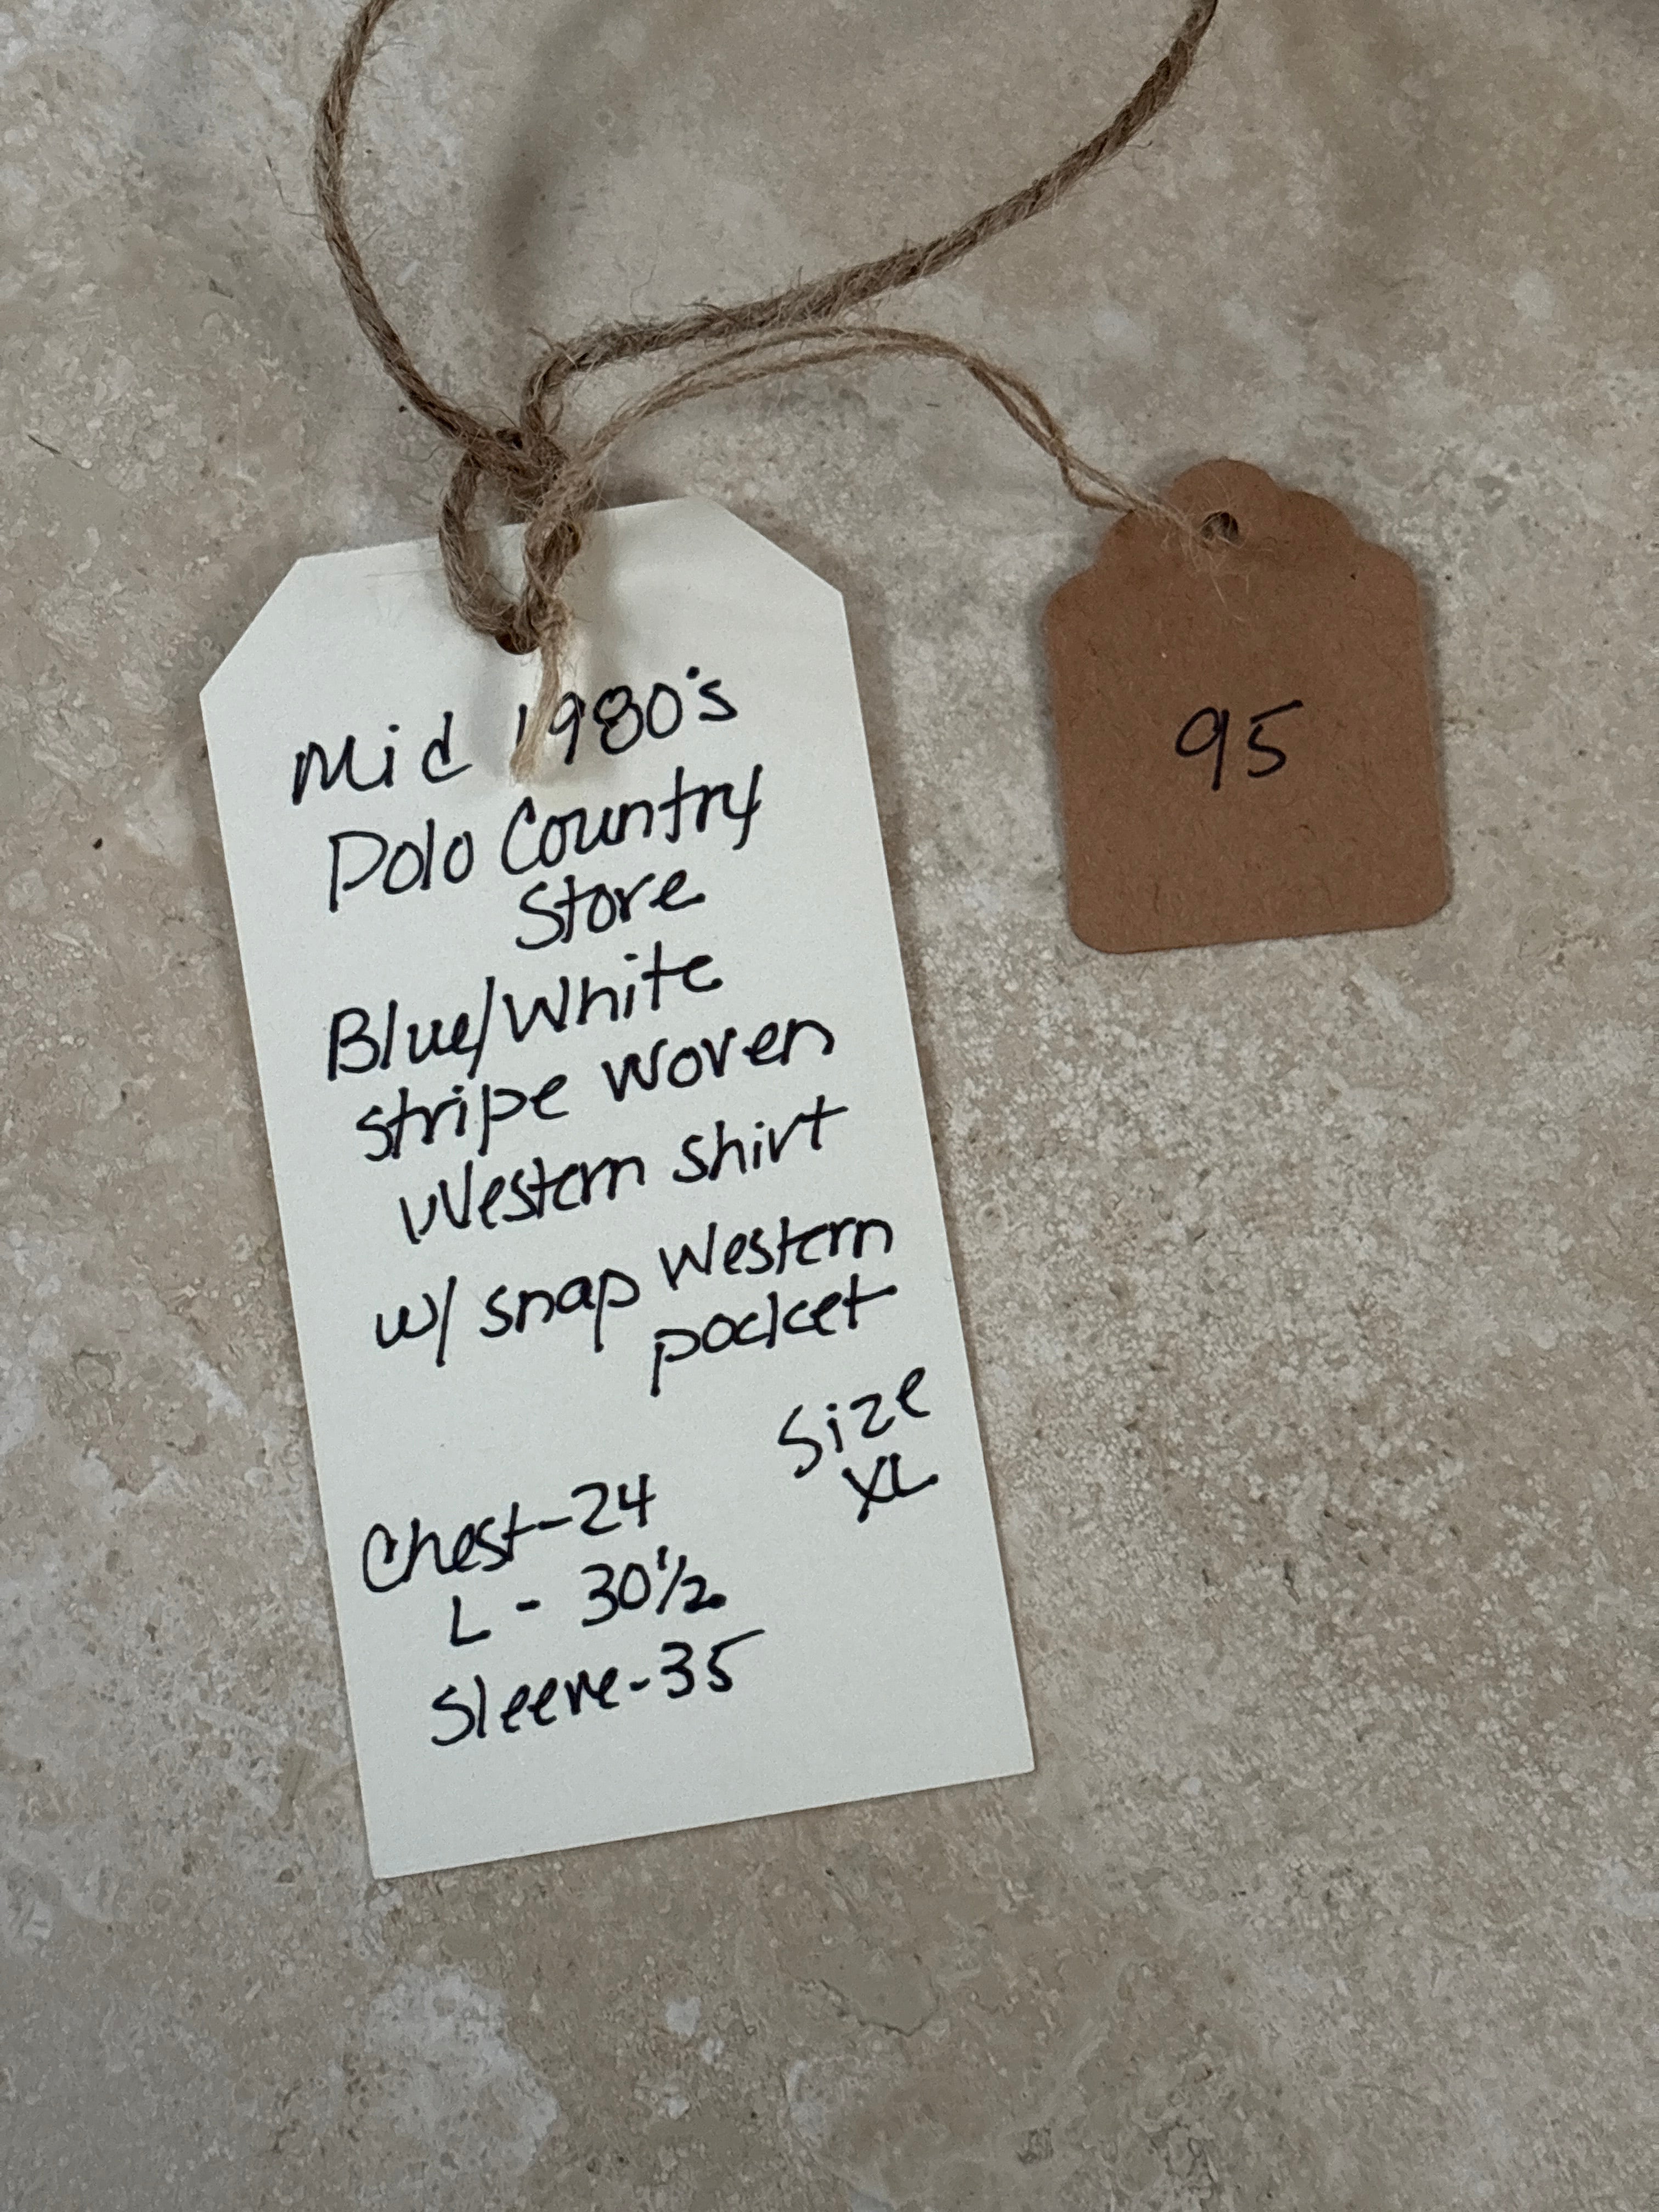 Mid 1980's
Polo Country
Store
Blue/White
stripe woven
Western shirt
w/ snap Western
pocket
Size
XL
Chest-24
L - 30 1/2
Sleeve-35
95